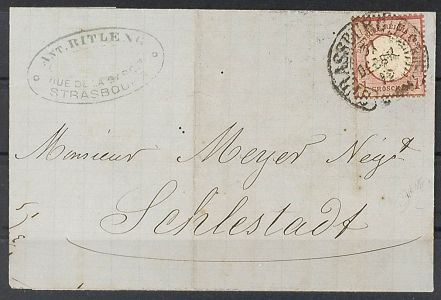 ANT. RITLENG
RUE DE LA
STRASBOURG
STRASSBURG
GROSCHEN
Monsieur Meyer Négt
Schlestadt